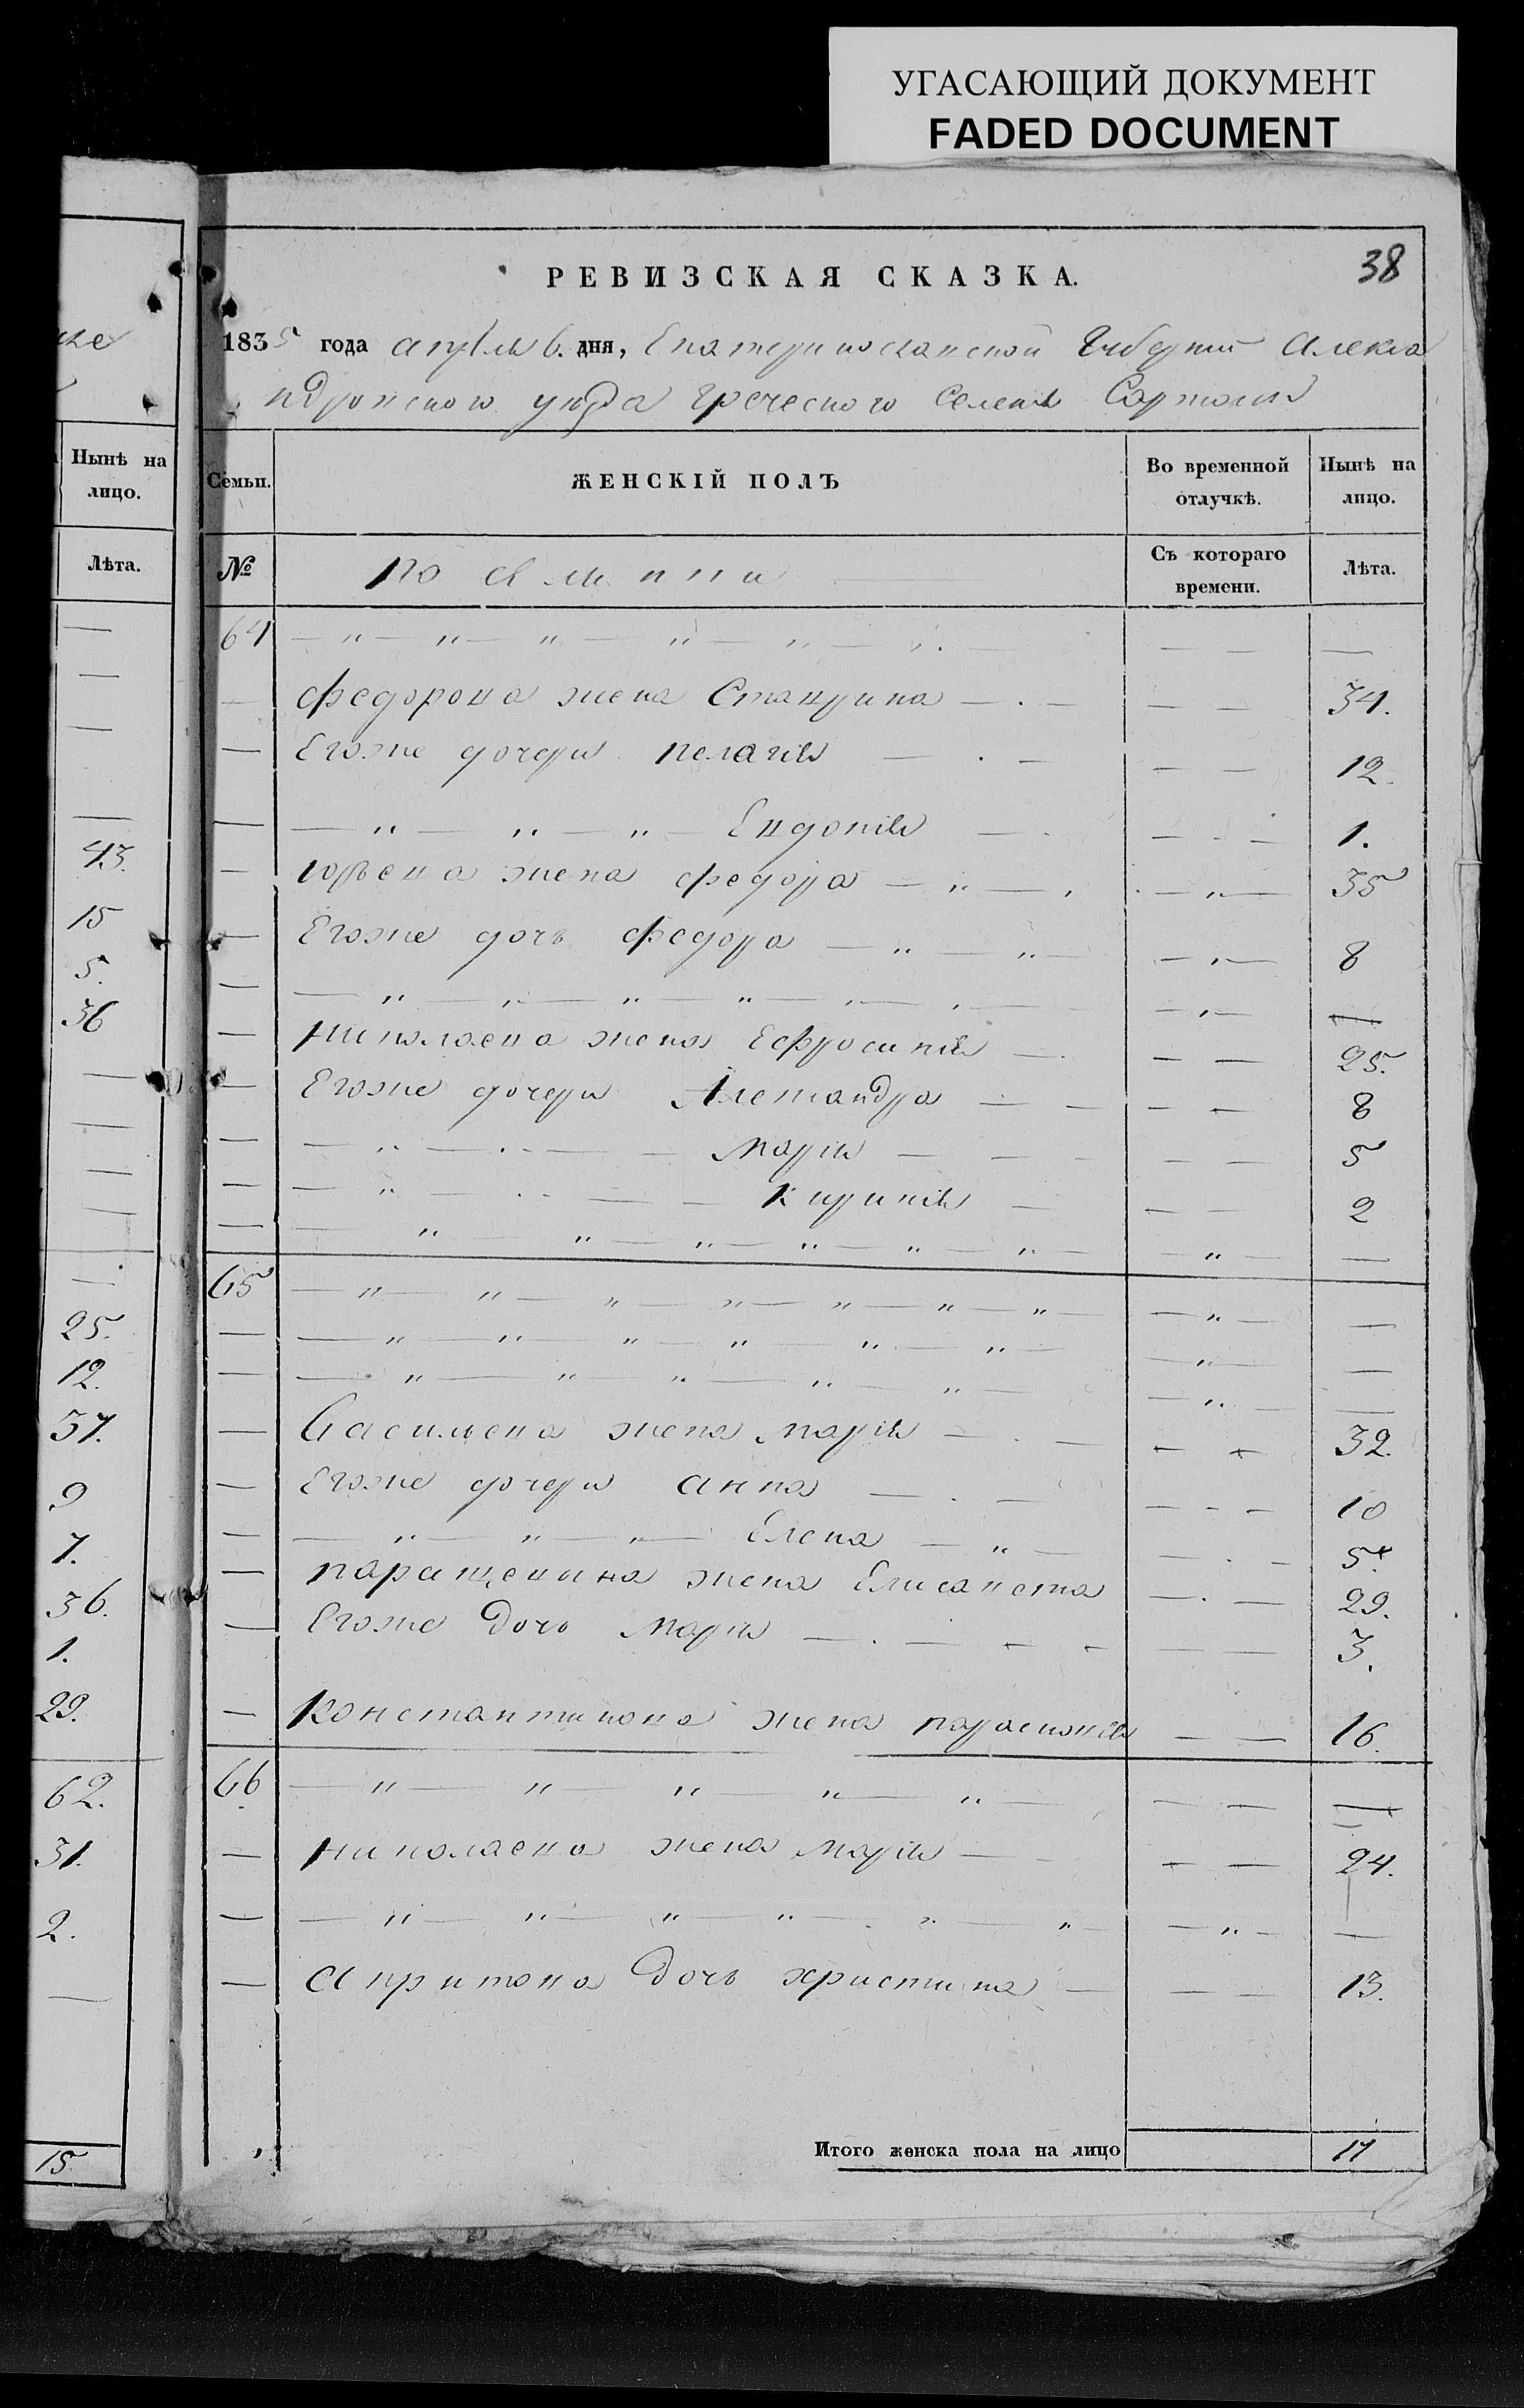 УГАСАЮЩИЙ ДОКУМЕНТ
FADED DOCUMENT
38
РЕВИЗСКАЯ СКАЗКА.
1835 года апреля 6. дня, Екатеринославской Губернии Алекса
ндровского уезда Греческого Селения Сартаны
Нынѣ на лицо.
Лѣта.
43.
15
5.
36
25.
12.
37.
9
7.
36.
1.
29.
62.
31.
2.
15.
Семьи. ЖЕНСКІЙ ПОЛЪ Во временной отлучкѣ. Нынѣ на лицо.
№ Съ котораго времени. Лѣта.
64
Федорова жена Ставрина 34.
Егоже дочери Пелагия 12.
Евдокия 1.
Юрьева жена Федора 35
Егоже дочь Федора 8
Николаева жена Ефросиния 25.
Егоже дочери Александра 8
Мария 5
Кирикия 2
65
Васильева жена Мария 32.
Егоже дочери Анна 10
Елена 5
жена Елисавета 29.
Егоже дочь Мария 3.
Константинова жена Парасковия 16.
66
Николаева жена Мария 24.
дочь Христина 13.
Итого женска пола на лицо 17